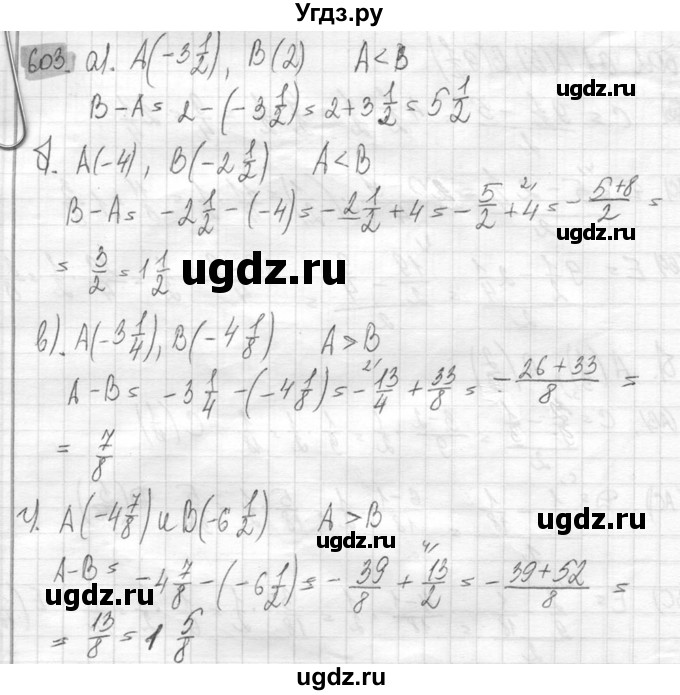 Угдз.ру
603. а). A(-3 1/2), B(2)   A < B
B - A = 2 - (-3 1/2) = 2 + 3 1/2 = 5 1/2
ugdz.ru
б). A(-4), B(-2 1/2)   A < B
ugdz.ru
B - A = -2 1/2 - (-4) = -2 1/2 + 4 = -5/2 + 4^(2/ = -(5+8)/2 =
= 3/2 = 1 1/2
ugdz.ru
ugdz.ru
в). A(-3 1/4), B(-4 1/8)   A > B
A - B = -3 1/4 - (-4 1/8) = -^(2/ 13/4 + 33/8 = -(26+33)/8 =
= 7/8
г). A(-4 7/8) и B(-6 1/2)   A > B
ugdz.ru
ugdz.ru
A - B = -4 7/8 - (-6 1/2) = -39/8 + ^(4/ 13/2 = -(39+52)/8 =
ugdz.ru
= 13/8 = 1 5/8
ugdz.ru
ugdz.ru